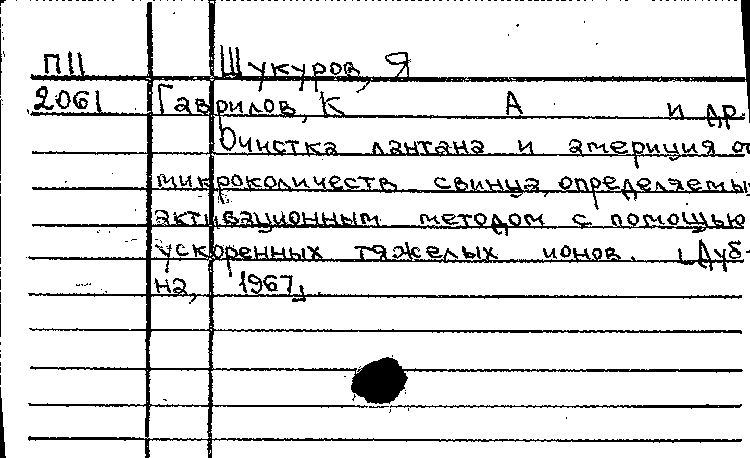 П11 Шукуров, Я
2061 Гаврилов, К А и др.
Очистка лантана и америция от
микроколичеств свинца, определяемых
активационным методом с помощью
ускоренных тяжелых ионов. [Дуб-
на, 1967].